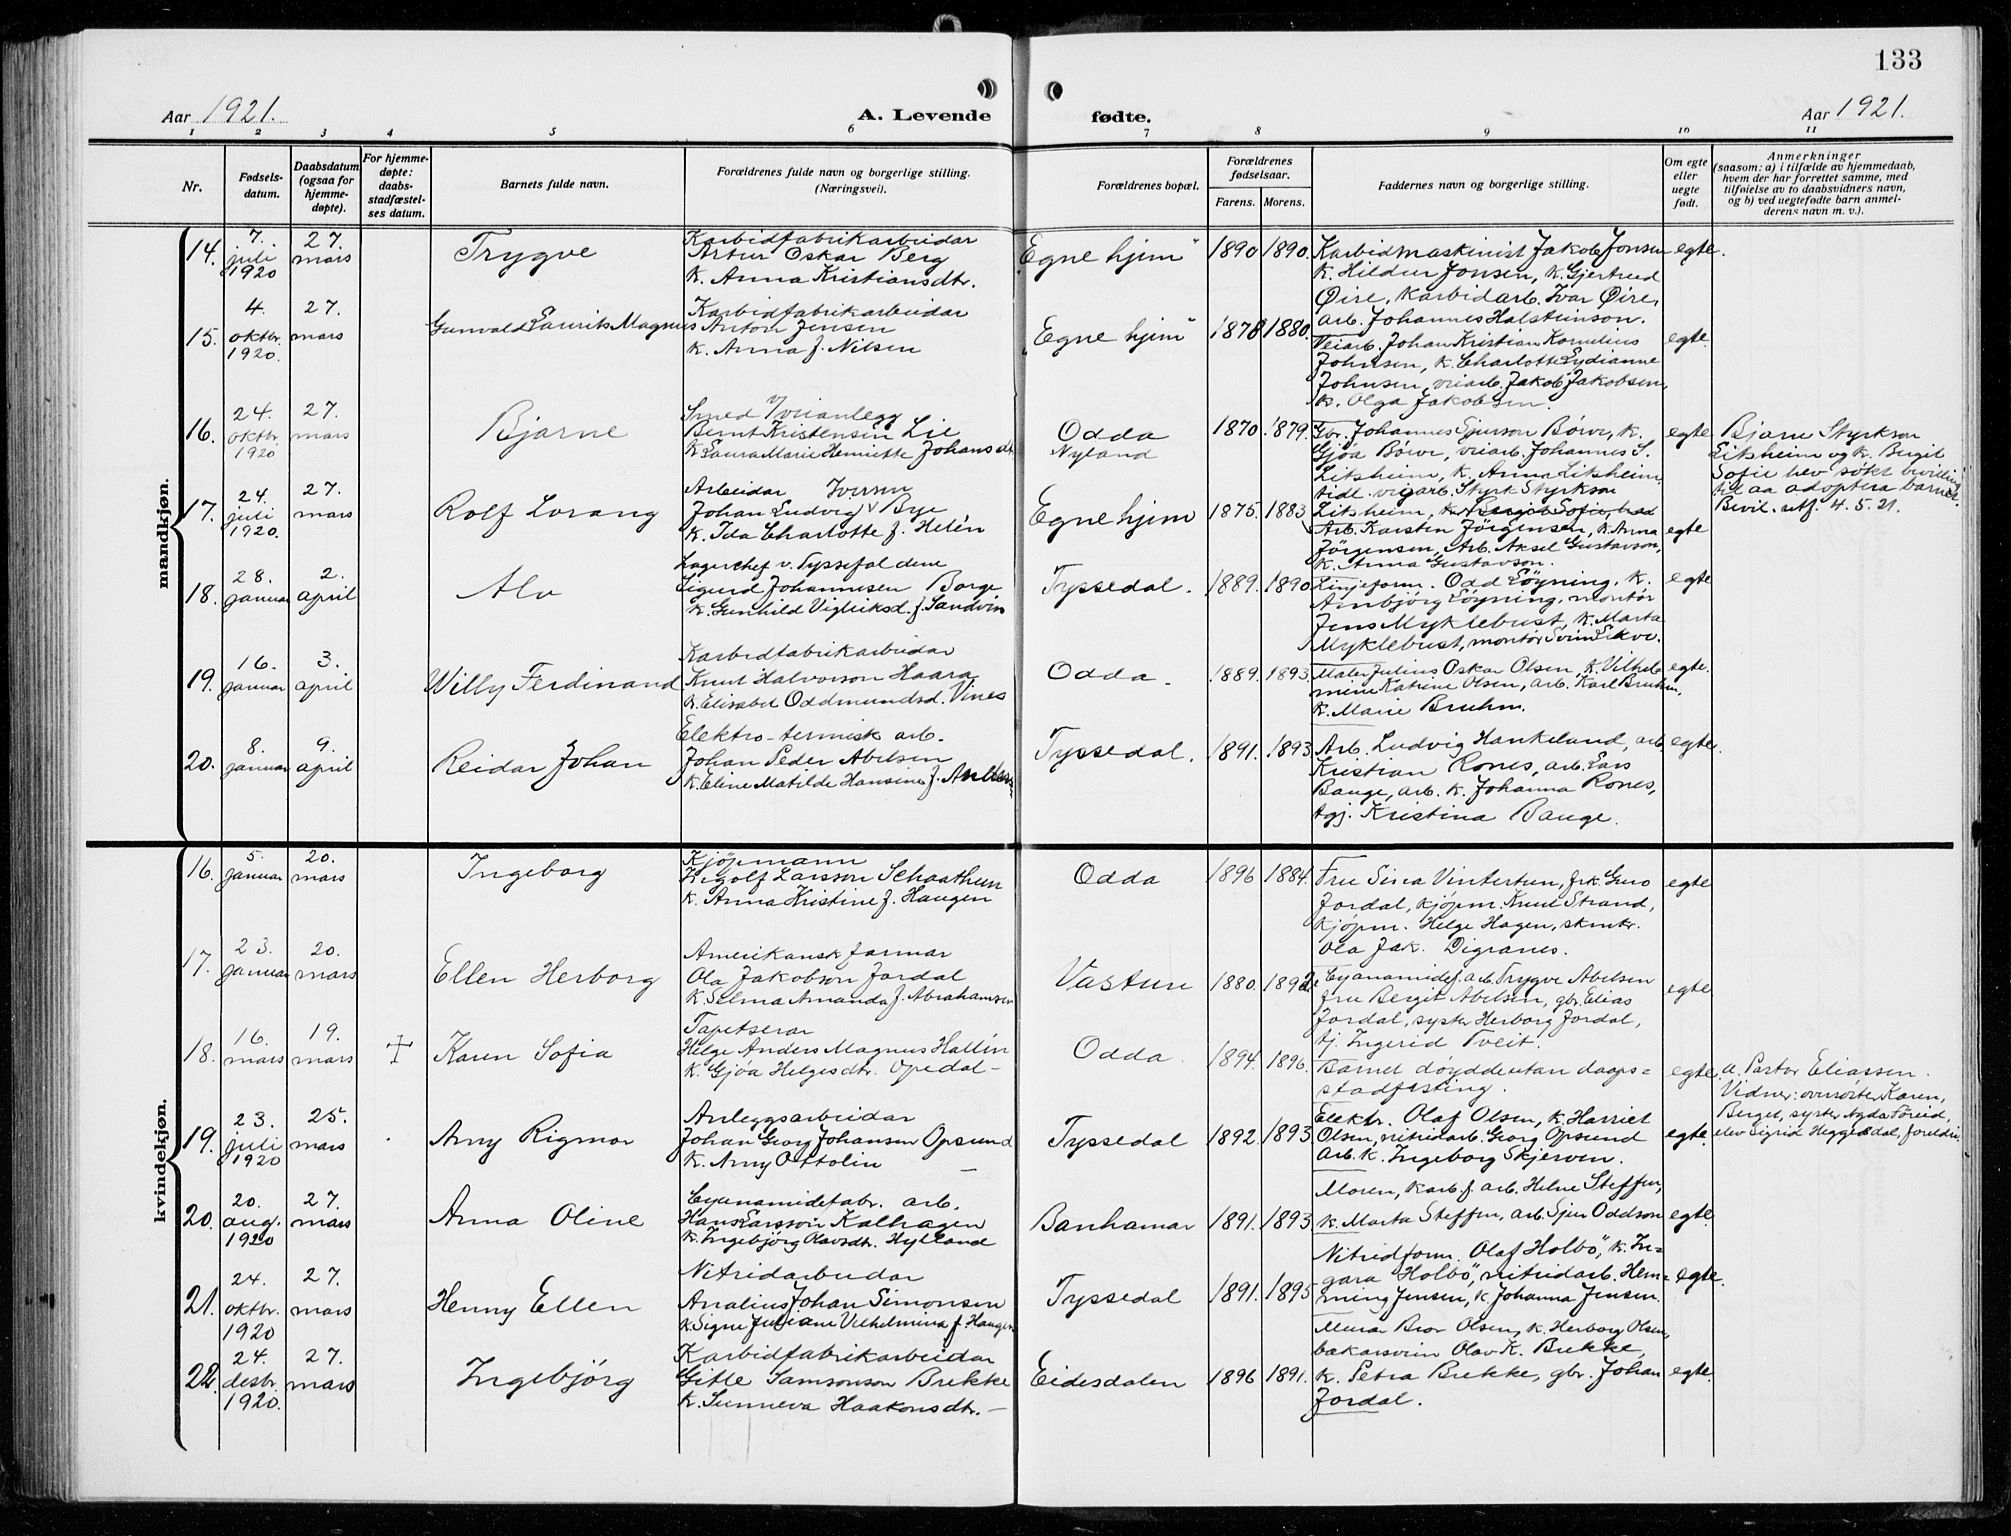 133
Aar 1921.
A. Levende
fødte.
Aar 1921.
1 2 3 4 5 6 7 8 9 10 11
Nr.
Fødsels-
datum.
Daabsdatum
(ogsaa for
hjemme-
døpte).
For hjemme-
døpte:
daabs-
stadfæstel-
ses datum.
Barnets fulde navn.
Forældrenes fulde navn og borgerlige stilling.
(Næringsvei).
Forældrenes bopæl.
Forældrenes
fødselsaar.
Farens. Morens.
Faddernes navn og borgerlige stilling.
Om egte
eller
uegte
født.
Anmerkninger
(saasom: a) i tilfælde av hjemmedaab,
hvem der har forrettet samme, med
tilføielse av to daabsvidners navn,
og b) ved uegtefødte barn anmel-
derens navn m. v.).
mandkjøn.
14.
7.
juli
1920
27.
mars
Trygve
Karbidfabrikarbeidar
Artur Oskar Berg
k. Anna Kristiansdtr.
Egne hjim"
1890 1890.
Karbidmaskinist Jakob Jonsen
k. Hildur Jonsen, k. Gjertrud
Øire, karbidarb. Ivar Øire,
arb. Johannes Halsteinson.
egte.
15.
4.
oktbr.
1920.
27.
mars
Gunvald Laurits Magnus
Karbidfabrikarbeidar
Anton Jensen
k. Anna f. Nilsen
Egne hjim"
1878 1880.
Veiarb. Johan Kristian Kornelius
Johnsen, k. Charlotte Lydianne
Johnsen, veiarb. Jakob Jakobsen,
k. Olga Jakobsen.
egte.
16.
24.
oktbr.
1920
27.
mars
Bjarne
Smed v/veianlegg
Bernt Kristensen Lie
k. Laura Marie Henriette Johansdt.
Odda
Nyland
1870. 1879.
Gbr. Johannes Sjurson Börve, k.
Gjöa Börve, veiarb. Johannes S.
Litsheim, k. Anna Litsheim,
tidl. veiarb. Styrk Styrkson
Litsheim, k. Bergit Sofie, hed
egte
Bjarne Styrkson
Litsheim og k. Birgit
Sofie hev søkt bevilling
til aa adoptera barnet.
Bevil. utf. 4. 5. 21.
17.
24.
juli
1920.
27.
mars
Rolf Lorang
Arbeidar Iversen
Johan Ludvig v Bye
k. Ida Charlotte f. Helén
Egne hjim
1875. 1883
Arb. Karsten Jörgensen, k. Anna
Jörgensen, Arb. Aksel Gustavson,
k. Anna Gustavson.
egte
18.
28.
januar
2.
april
Alv
Lagerchef v. Tyssefaldene
Sigurd Johannesen Borge
k. Gunhild Vigleiksd. f. Sandvin
Tyssedal.
1889. 1890
Linjeform. Odd Löyning, k.
Ambjörg Löyning, montör
Jens Myklebust, k. Marta
Myklebust, montör Svein Ekve.
egte
19.
16.
januar
3.
april
Willy Ferdinand
Karbidfabrikarbeidar
Knut Halvorson Haara
k. Elisabet Oddmundsd. Vines
Odda.
1889. 1893
Maler Julius Oskar Olsen, k. Vilhel-
mine Katrine Olsen, arb. Karl Bruhm,
k. Marie Bruhm.
egte.
20.
8.
januar
9.
april
Reidar Johan
Elektro-termisk arb.
Johan Peder Abelsen
k. Eline Matilde Hansine f.
Tyssedal.
1891. 1893
Arb. Ludvig Hankeland, arb.
Kristian Rones, arb. Lars
Bauge, arb. k. Johanna Rones,
tgj. Kristina Bauge.
egte.
kvindekjøn.
16.
5.
januar
20.
mars
Ingeborg
Kjöpmann
Ingolf Larsson Schaathun
k. Anna Kristine f. Haugen
Odda
1896 1884.
Fru Sina Vintertun, frk. Guro
Jordal, kjöpm. Knut Strand,
kjöpm. Helge Hagen, skmkr.
Ola Jak. Digranes.
egte
17.
23.
januar
20.
mars
Ellen Herborg
Amerikansk farmar
Ola Jakobson Jordal
k. Selma Amanda f. Abrahamsen
Vastun
1880. 1892
Cyanamidef. arb. Trygve Abelsen
fru Bergit Abelsen, gbr. Elias
Jordal, syster Herborg Jordal,
tj. Ingerid Tveit.
egte
18.
16.
mars
19.
mars
Karen Sofia
Tapetserar
Helge Anders Magnus Hallin
k. Gjöa Helgesdtr. Opedal-
Odda.
1894. 1896.
Barnet döydde utan daaps=
stadfesting.
egte
a. Pastor Eliassen.
Vidner: oversöster Karen,
Berget, syster Agda Töreid,
elev Sigrid Heggesdal, foreldri
19.
23.
juli
1920
25.
mars
Amy Rigmor
Anleggsarbeidar
Johan Georg Johansen Opsund
k. Amy Ottolin
Tyssedal
1892. 1893
Elektr. Olaf Olsen, k. Harriet
Olsen, nitridarb. Georg Opsund
arb. k. Ingeborg Skjerven.
egte.
20.
20.
aug.
1920
27.
mars
Anna Oline
Cyanamidefabr. arb.
Hans Larsson Kalhagen
k. Ingebjörg Olavsdtr. Hylland
Banhamar
1891. 1893
Moren, karb. f. arb. Helne Steffen,
k. Marta Steffen, arb. Sjur Oddson
egte.
21.
24.
oktbr.
1920
27.
mars
Henny Ellen
Nitridarbeidar
Analius Johan Simonsen
k. Signe Juliane Vilhelmina f. Haugen
Tyssedal
1891. 1895
Nitridform. Olaf Holbö, k. In=
gara Holbö, nitridarb. Hem=
ming Jensen, k. Johanna Jensen.
egte.
22.
24.
desbr.
1920.
27.
mars
Ingebjörg
Karbidfabrikarbeidar
Gitle Samsonson Brekke
k. Sunneva Haakonsdtr.-
Eidesdalen
1896 1891.
Murar Bror Olsen, k. Herborg Olsen,
bakarsvein Olav K. Brekke,
k. Petra Brekke, gbr. Johan
Jordal.
egte.